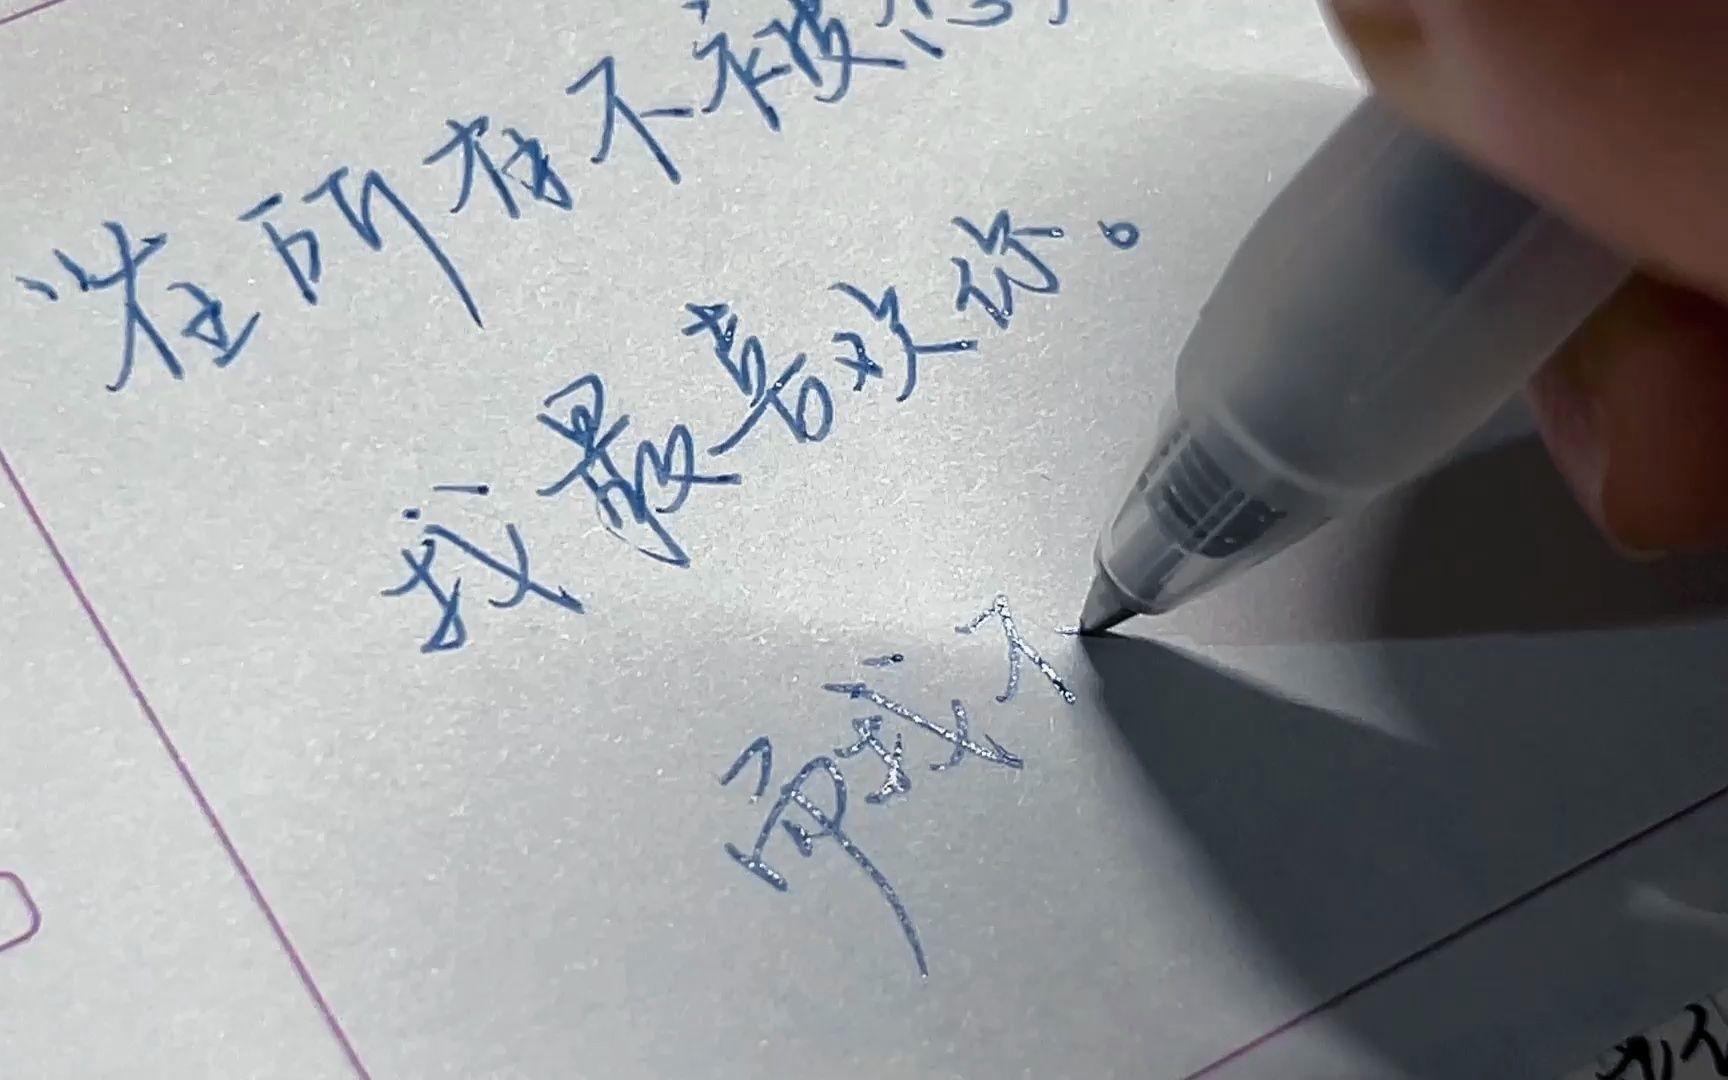 “在所有不被
我最喜欢你。
我